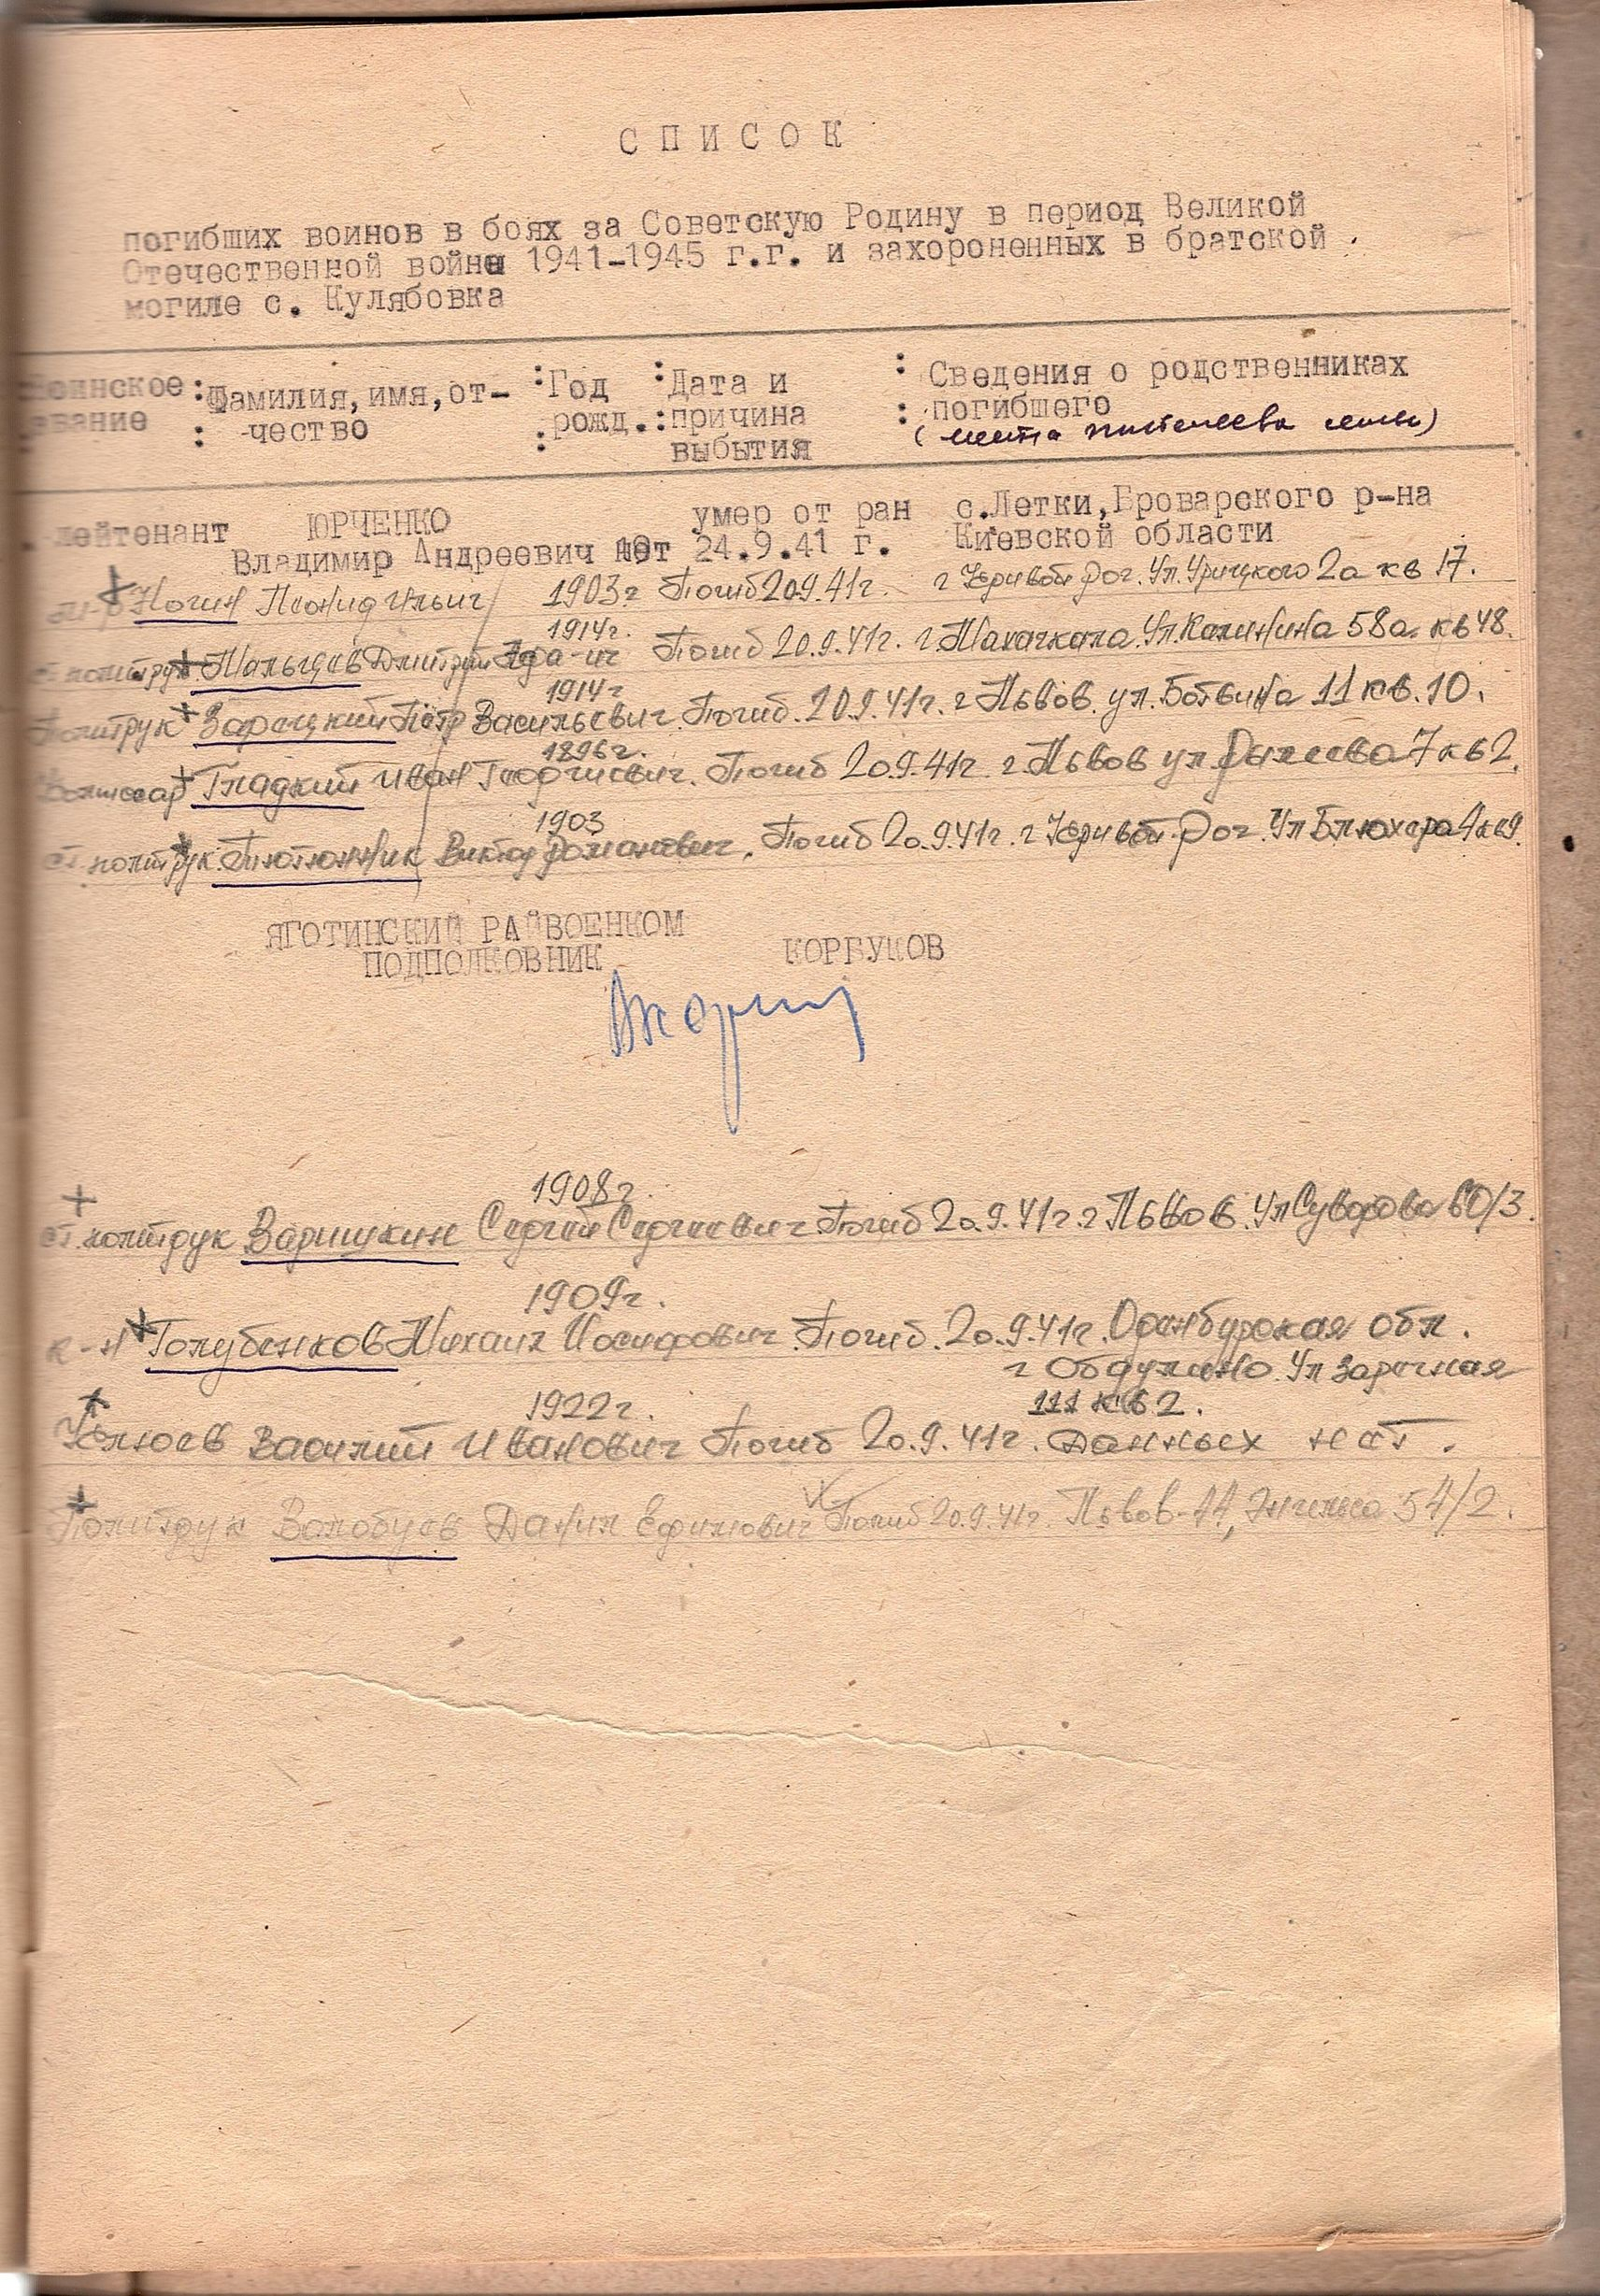 СПИСОК
погибших воинов в боях за Советскую Родину в период Великой
Отечественной войне 1941-1945 г.г. и захороненных в братской
могиле с. Кулябовка
Воинское : Фамилия, имя, от- : Год : Дата и : Сведения о родственниках
звание : -чество : рожд. : причина : погибшего
выбытия (места жительства семьи)
лейтенант ЮРЧЕНКО умер от ран с.Летки, Броварского р-на
Владимир Андреевич нет 24.9.41 г. Киевской области
Ногин Леонид Ильич 1903г Погиб 20.9.41г. г Кривой Рог. Ул. Урицкого 2а кв 17.
1914г.
ст. политрук Мальцев Дмитрий Погиб 20.9.41г. г Махачкала. Ул. Калинина 58а. кв 48.
1914г
Политрук Зарецкий Пётр Васильевич. Погиб. 20.9.41г. г Львов. ул. Ботвина 11 кв. 10.
1896г.
Комиссар Гладкий Иван Георгиевич. Погиб 20.9.41г. г. Львов ул. Рылеева 7 кв 2.
1903
ст. политрук Тютюнник Виктор Романович. Погиб 20.9.41г. г Кривой Рог. Ул Блюхера 4 кв 9.
ЯГОТИНСКИЙ РАЙВОЕНКОМ
ПОДПОЛКОВНИК КОРБУКОВ
1908г.
ст. политрук Варишкин Сергей Сергеевич Погиб 20.9.41г. г Львов. Ул Суворова 60/3.
1909г.
к-н Голубенков Михаил Иосифович. Погиб. 20.9.41г. Оренбурская обл.
г Обдулино. Ул Заречная
1922г. 111 кв 2.
Клюев Василий Иванович Погиб 20.9.41г. данных нет.
Политрук Волобуев Данил Ефимович Погиб 20.9.41г. Львов-44, Энгельса 54/2.